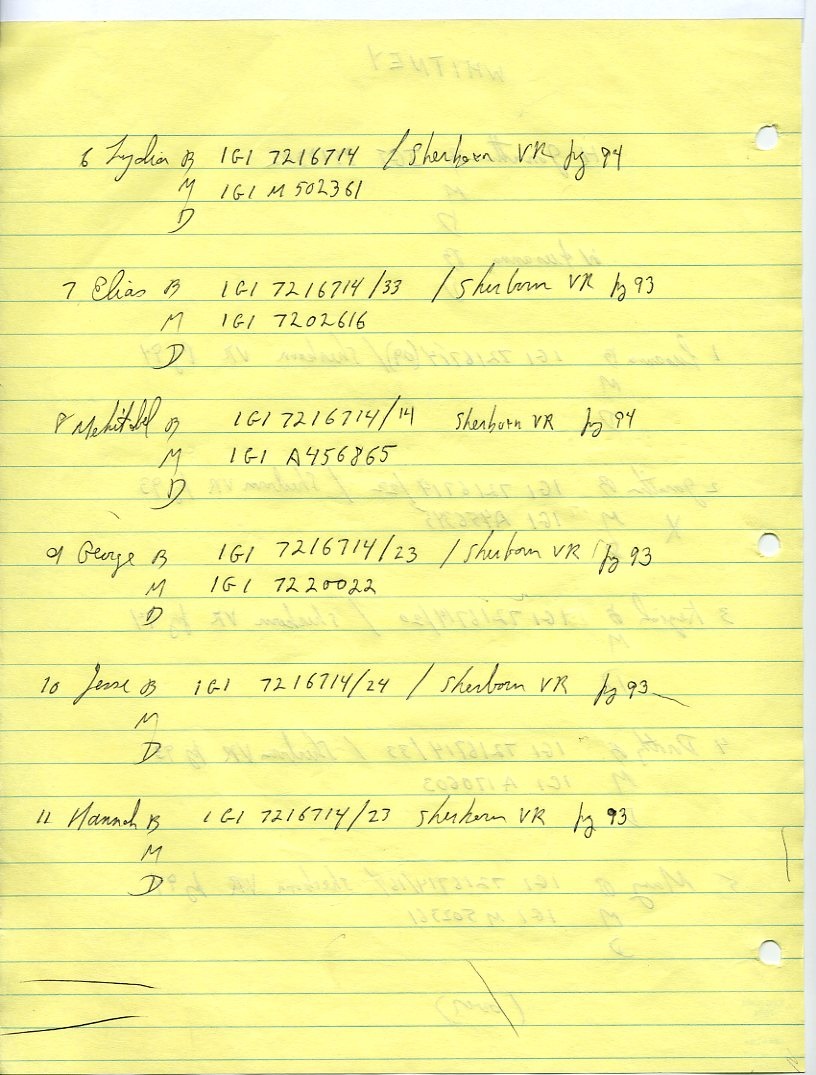 6 Lydia B IGI 7216714 / Sherborn VR pg 94
M IGI M 502361
D
7 Elias B IGI 7216714/33 / Sherborn VR pg 93
M IGI 7202616
D
8 Mehitabel B IGI 7216714/14 Sherborn VR pg 94
M IGI A456865
D
9 George B IGI 7216714/23 / Sherborn VR pg 93
M IGI 7220022
D
10 Jesse B IGI 7216714/24 / Sherborn VR pg 93
M
D
11 Hannah B IGI 7216714/23 Sherborn VR pg 93
M
D